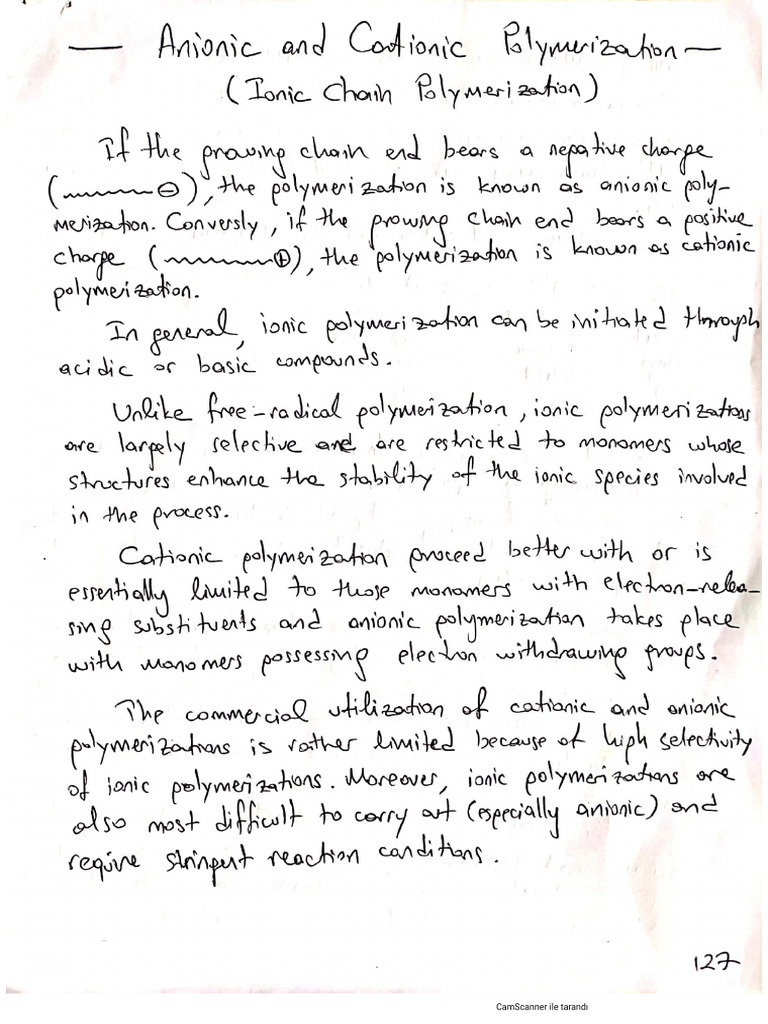 — Anionic and Cationic Polymerization —
(Ionic Chain Polymerization)
If the growing chain end bears a negative charge
(﹏﹏⊖), the polymerization is known as anionic poly-
merization. Conversly, if the growing chain end bears a positive
charge (﹏﹏⊕), the polymerization is known as cationic
polymerization.
In general, ionic polymerization can be initiated through
acidic or basic compounds.
Unlike free-radical polymerization, ionic polymerizations
are largely selective and are restricted to monomers whose
structures enhance the stability of the ionic species involved
in the process.
Cationic polymerization proceed better with or is
essentially limited to those monomers with electron-relea-
sing substituents and anionic polymerization takes place
with monomers possessing electron withdrawing groups.
The commercial utilization of cationic and anionic
polymerizations is rather limited because of high selectivity
of ionic polymerizations. Moreover, ionic polymerizations are
also most difficult to carry out (especially anionic) and
require stringent reaction conditions.
127
CamScanner ile tarandı